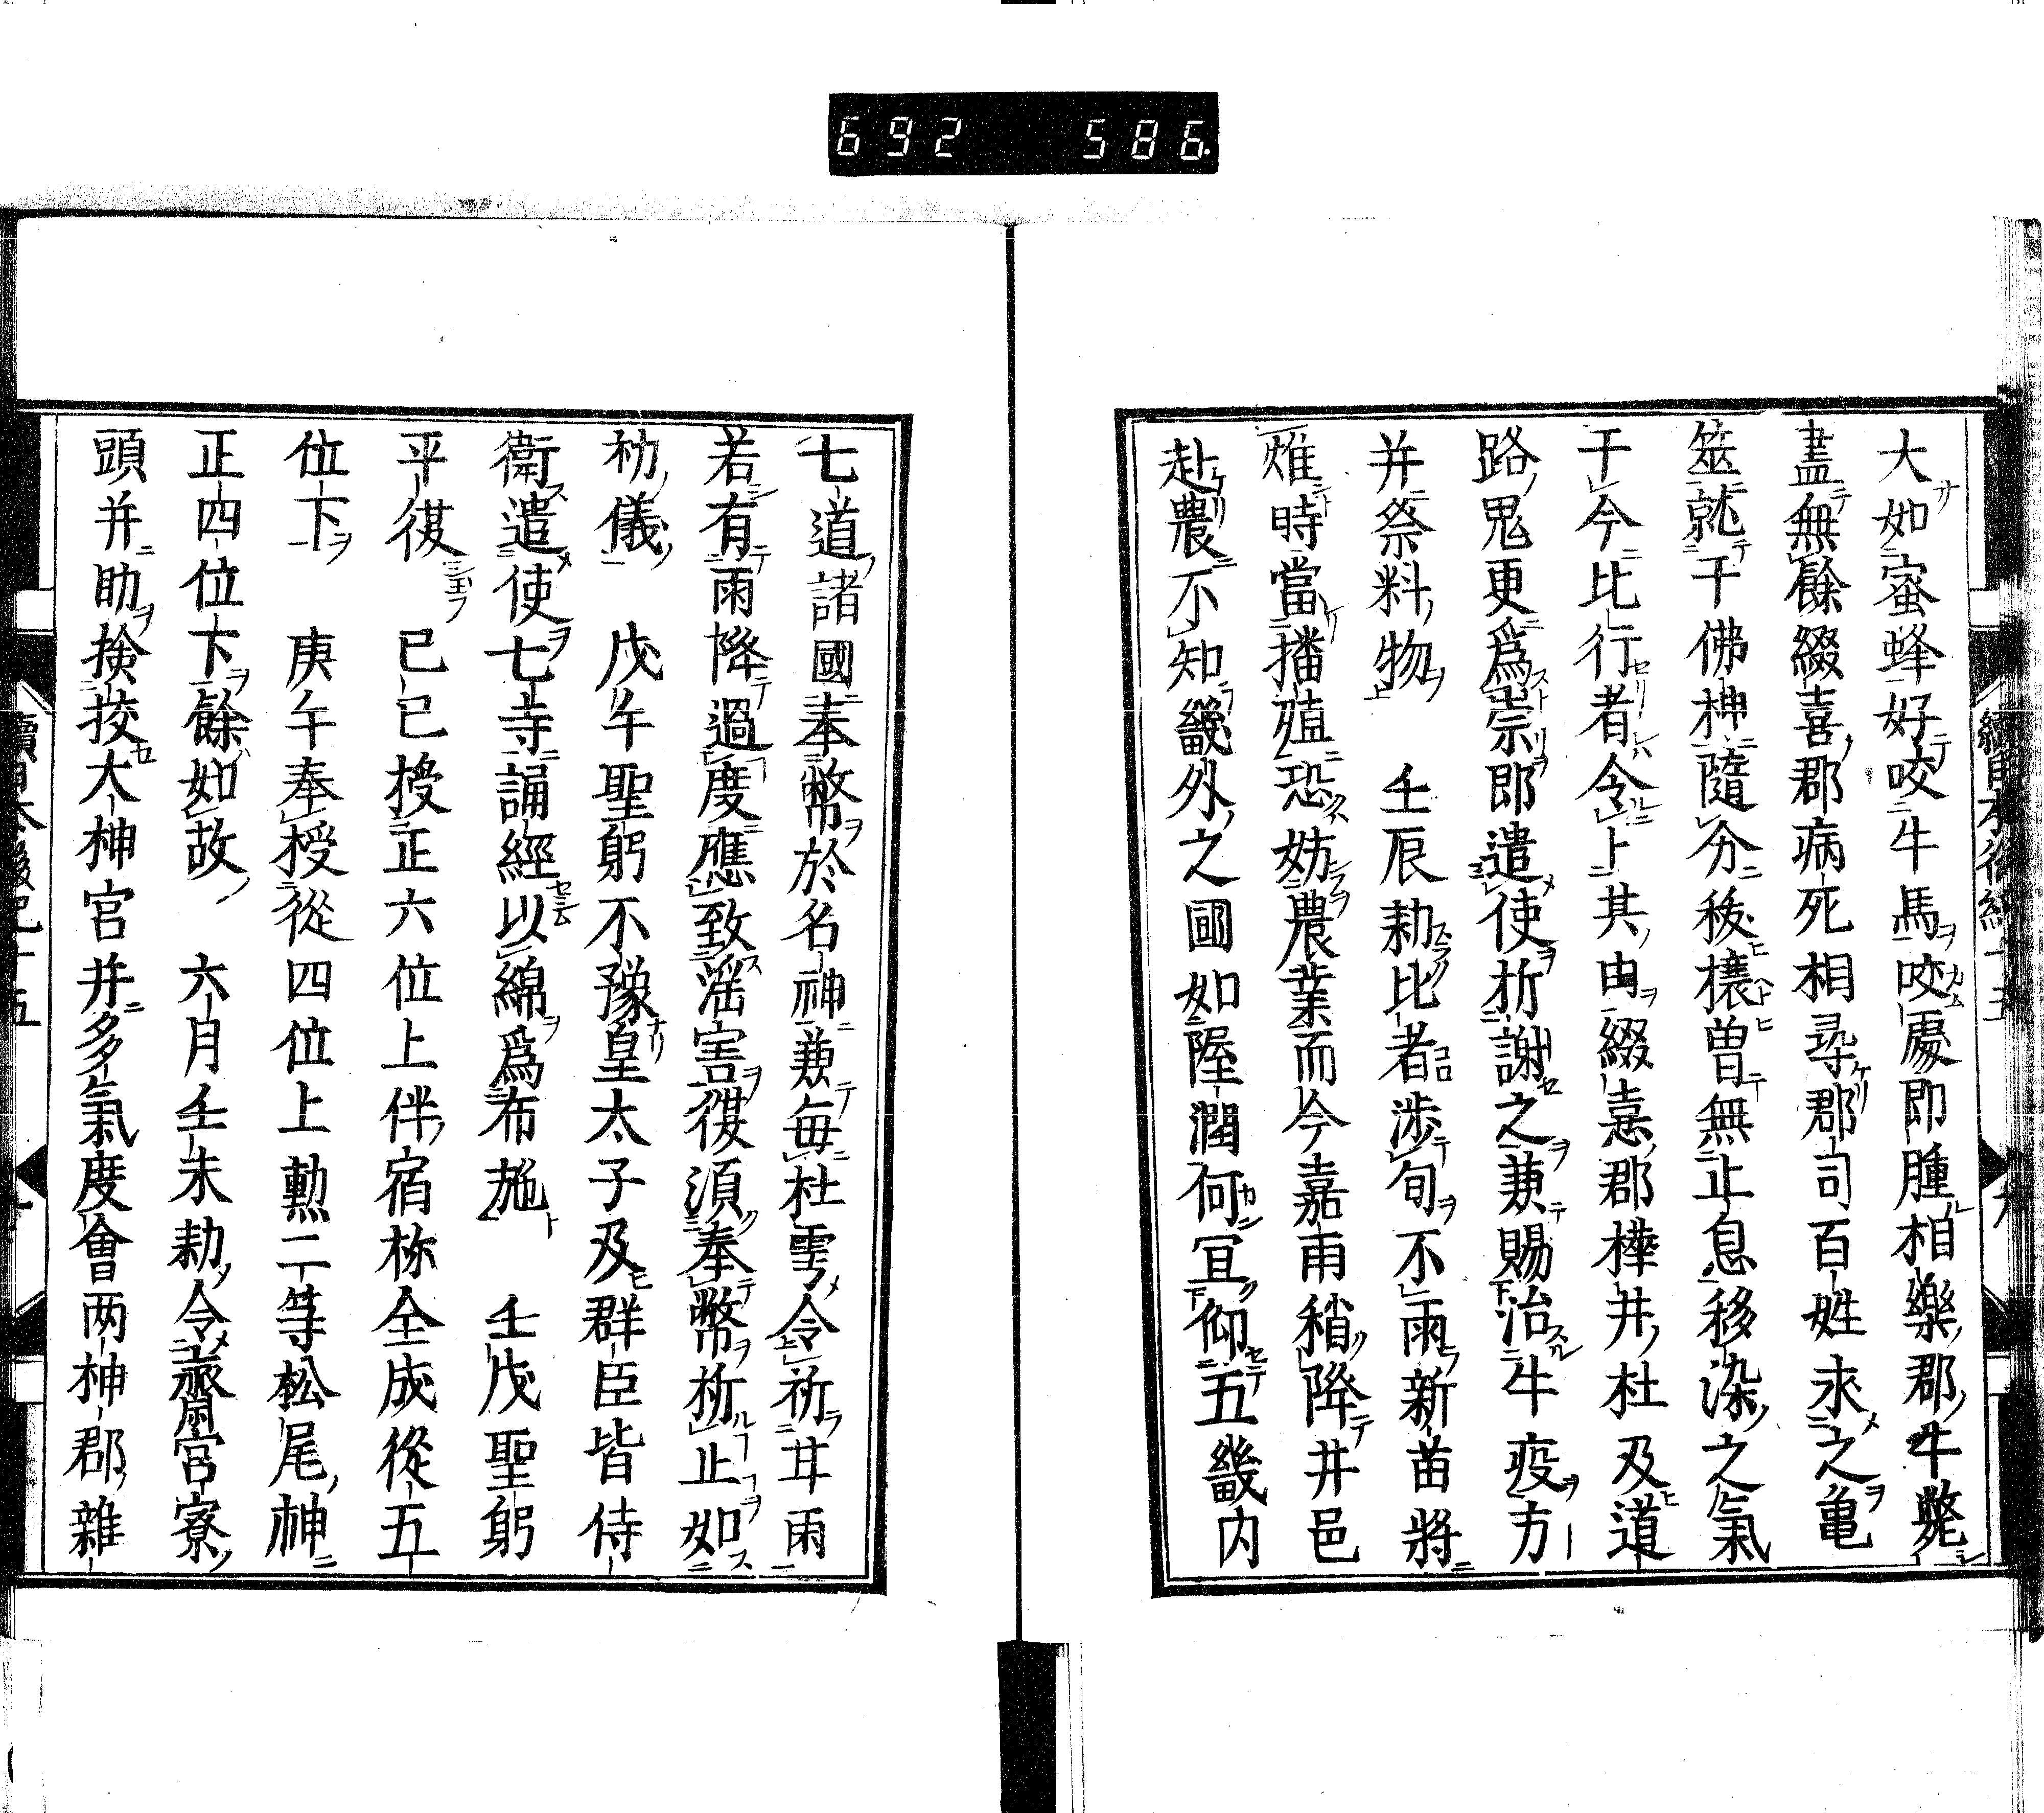 692 586.
大如蜜蜂好咬牛馬咬處即腫相樂郡牛斃
盡無餘綴喜郡病死相尋郡司百姓求之亀
筮就于佛神隨分秡禳曽無止息移染之氣
于今比行者令上其由綴憙郡樺井社及道
路鬼更爲崇即遣使祈謝之兼賜治牛疫方
并祭料物 壬辰勅比者渉旬不雨新苗將
燋時當播殖恐妨農業而今嘉雨稍降井邑
赴農不知畿外之國如渥潤何冝仰五畿内
七道諸國奉幣於名神兼毎社雩令祈甘雨
若有雨降過度應致滛害復湏奉幣祈止如
初儀 戊午聖躬不豫皇太子及群臣皆侍
衛遣使七寺誦經以綿爲布施 壬戌聖躬
平復 已巳授正六位上伴宿祢全成從五
位下 庚午奉授從四位上勲二等松尾神
正四位下餘如故 六月壬未勅令齋宮寮
頭并助撿挍大神宮并多氣度會两神郡雜